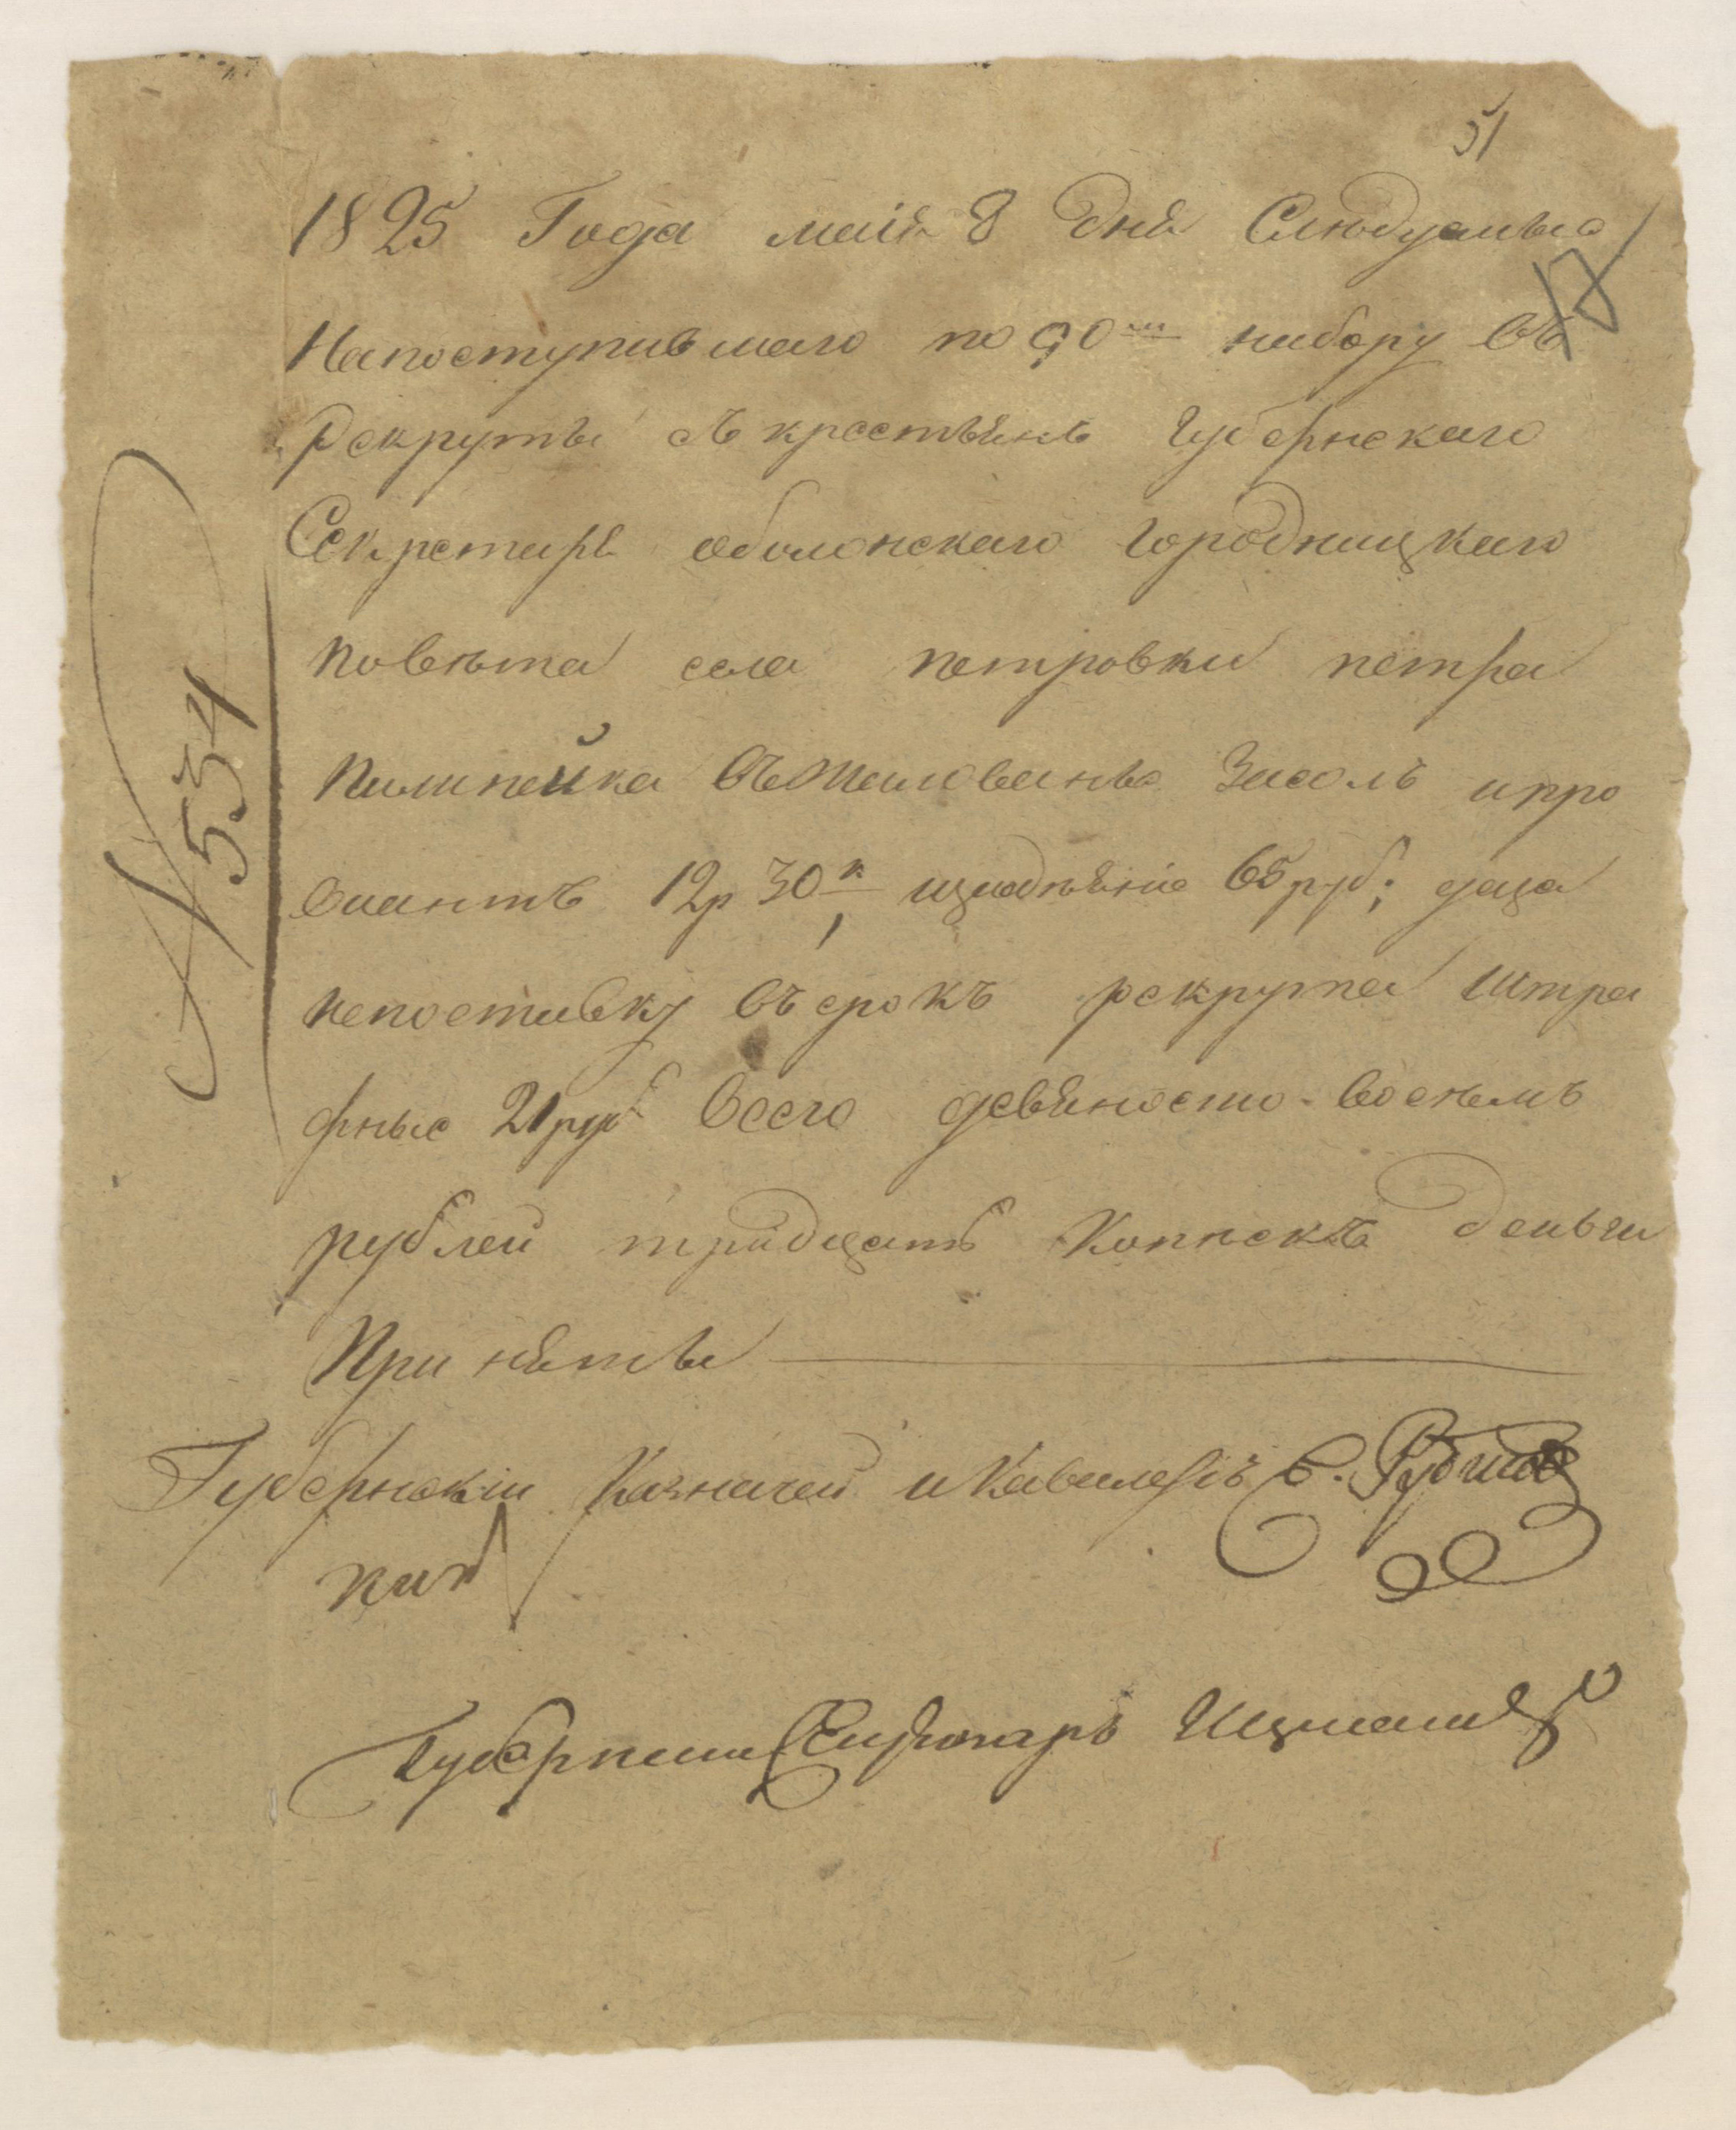 51
18
№ 534
1825 Года маія 8 дня Слюдуемыя
Напоступившаго по 90му набору въ
рекруты съ крестьянъ Губернскаго
Секретаря оболонскаго городницкаго
повѣта села петровки петра
въ жалованье засоль ипро
віантъ 12р 30к 65руб; даза
непоставку въ срокъ рекрута штра
фные 21руб всего девяносто восемъ
рублей тридцать копѣекъ деньги
Приняты
Губернскій Казначей и Кавалеръ
Губернски Секретарь